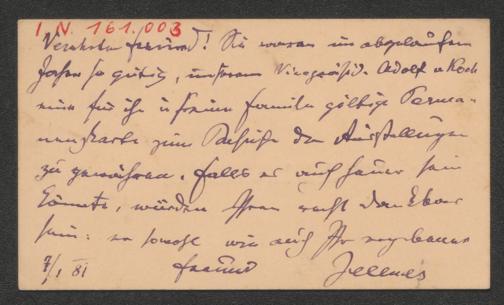 I.N. 161.003
Verehrter Freund! Sie waren im abgelaufenen
Jahre so gütig, unserem Vicepräsid. Adolf v Koch
eine für ihn u seine Familie gültige Perma-
nenzkarte zum Besuche der Ausstellungen
zu gewähren. Falls es auch heuer sein
könnte, würden Ihnen recht dankbar
sein: er sowohl wie auch Ihr ergebener
7/1 81 Freund